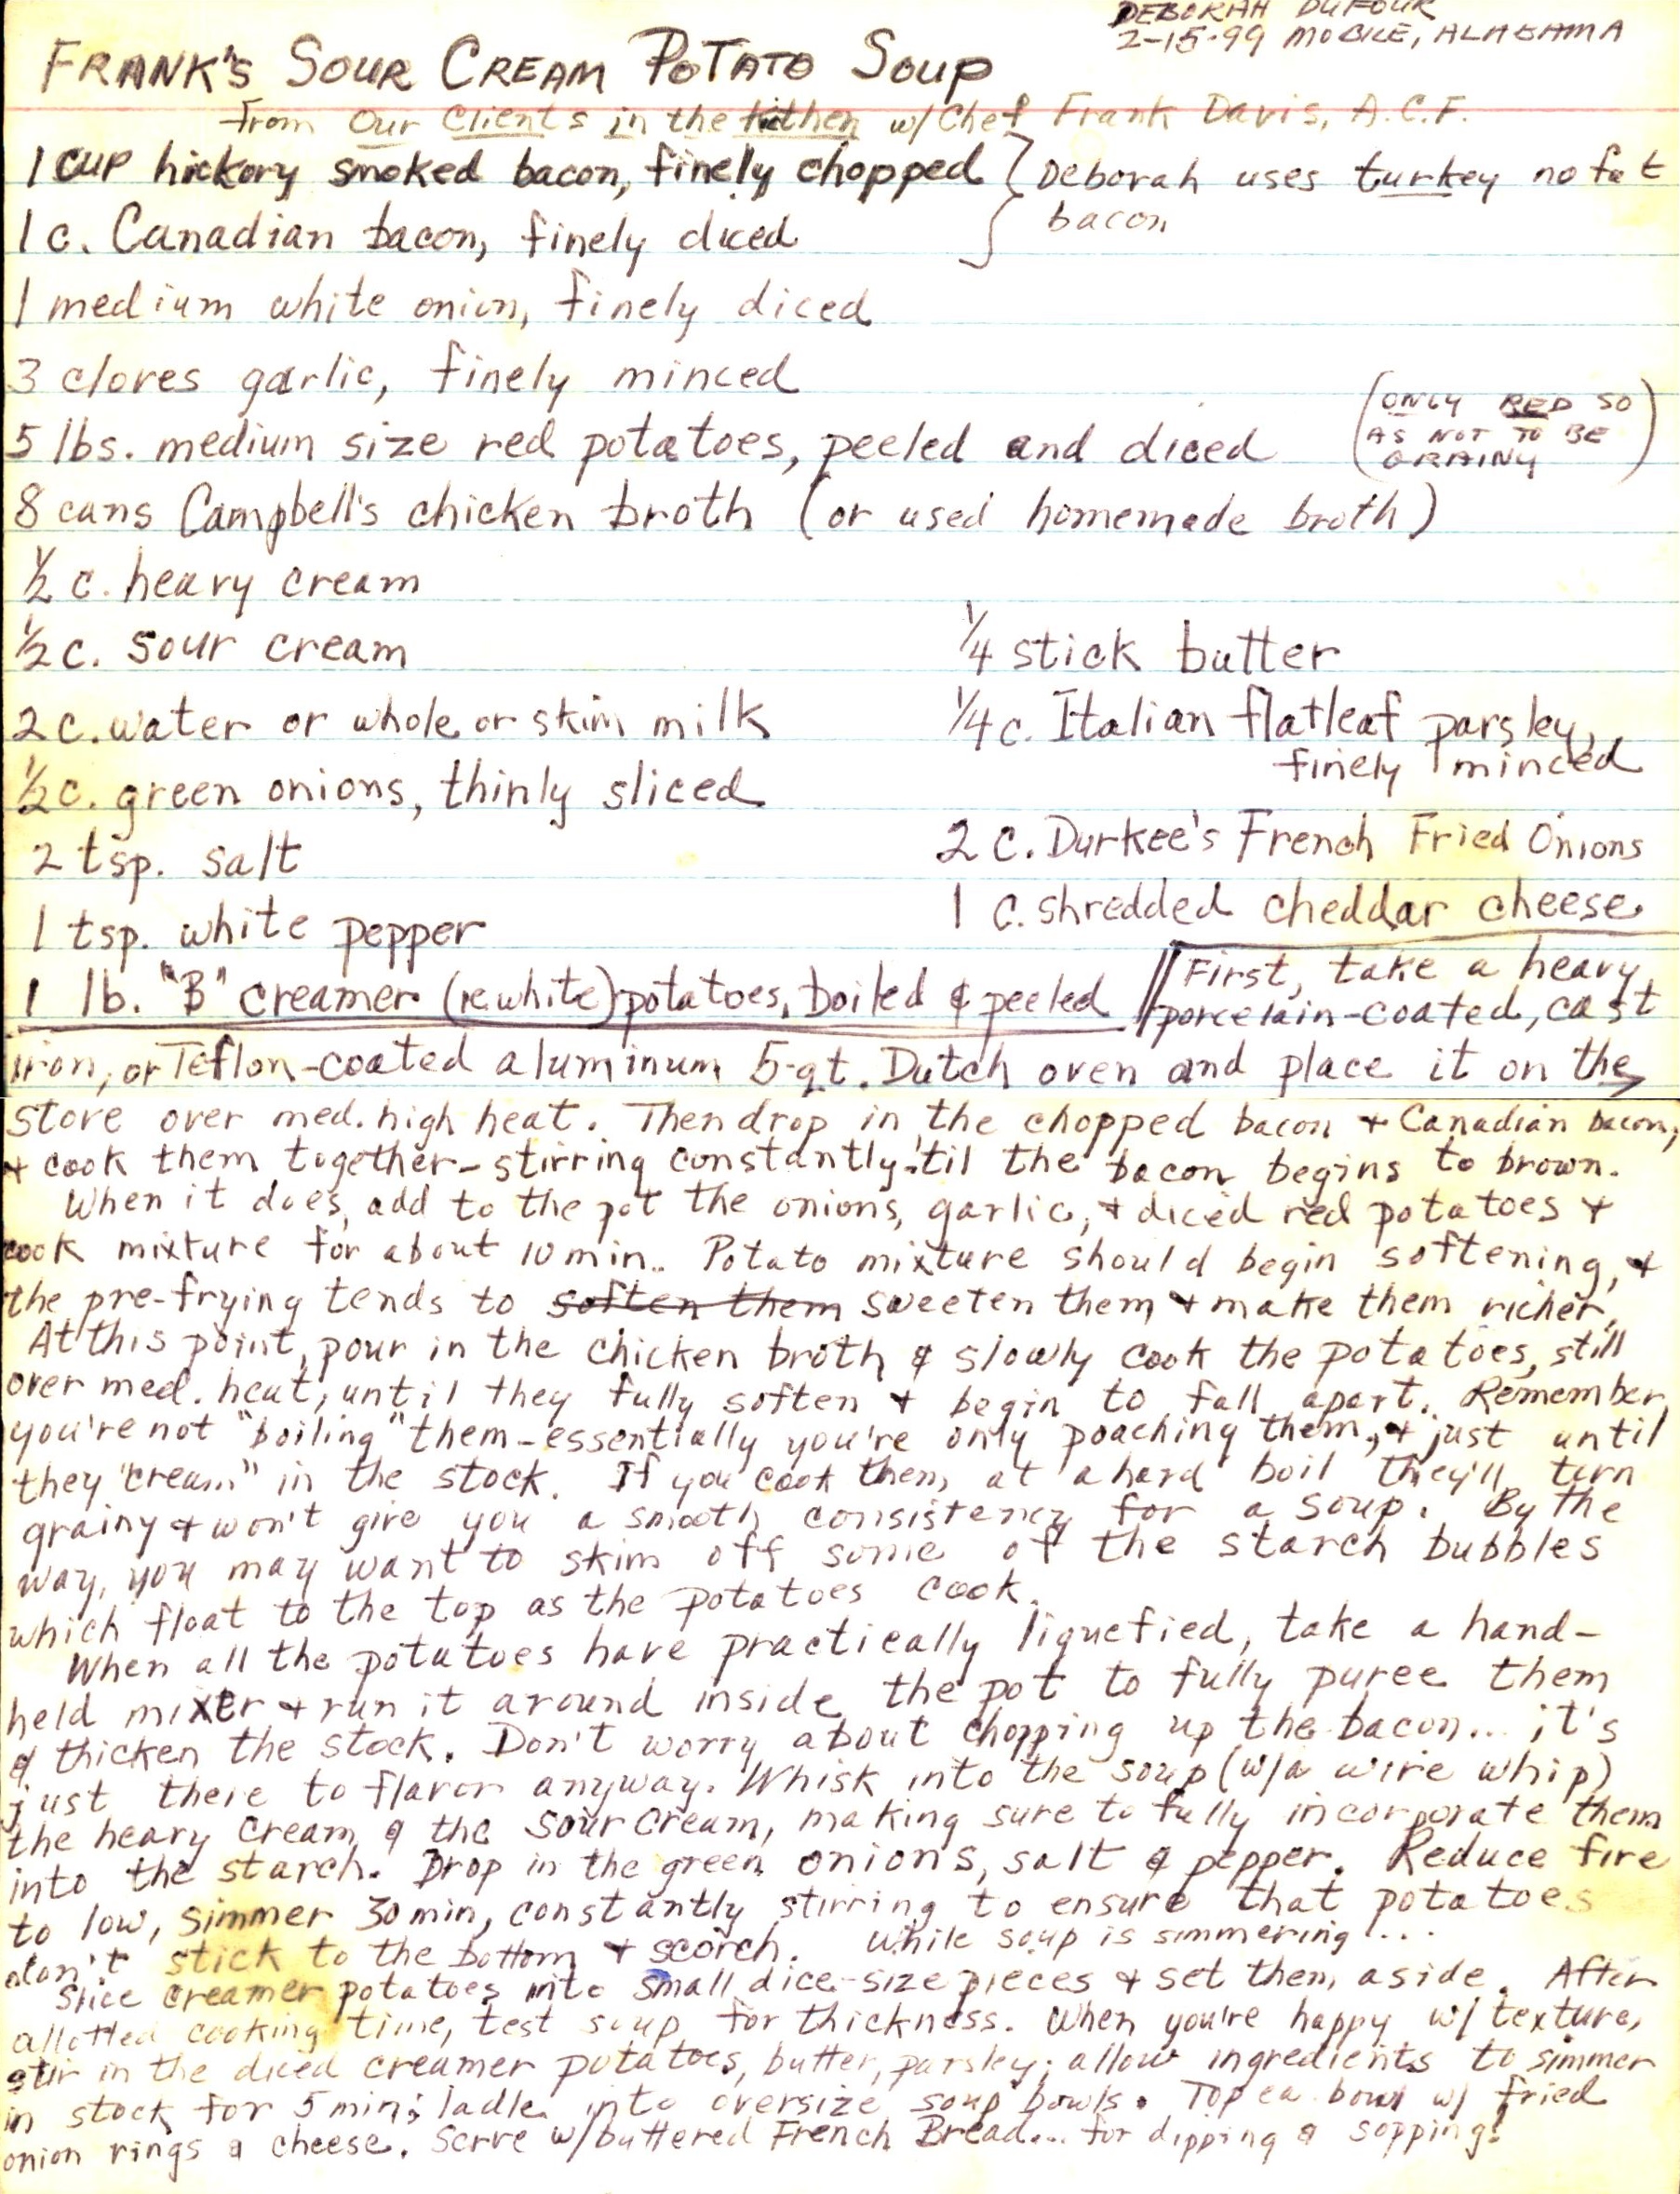 DEBORAH DUFOUR
2-15-99 MOBILE, ALABAMA
FRANK'S SOUR CREAM POTATO SOUP
From Our Clients in the kithen w/ Chef Frank Davis, A.C.F.
1 cup hickory smoked bacon, finely chopped } Deborah uses turkey no fat
1 c. Canadian bacon, finely diced bacon
1 medium white onion, finely diced
3 cloves garlic, finely minced
5 lbs. medium size red potatoes, peeled and diced (ONLY RED SO
AS NOT TO BE
GRAINY)
8 cans Campbell's chicken broth (or used homemade broth)
½ c. heavy cream
½ c. sour cream
2 c. water or whole or skim milk
½ c. green onions, thinly sliced
2 tsp. salt
1 tsp. white pepper
1 lb. "B" creamer (re white) potatoes, boiled & peeled
¼ stick butter
¼ c. Italian flatleaf parsley,
finely minced
2 c. Durkee's French Fried Onions
1 c. shredded cheddar cheese
First, take a heavy
porcelain-coated, cast
iron, or Teflon-coated aluminum 5-qt. Dutch oven and place it on the
stove over med. high heat. Then drop in the chopped bacon + Canadian bacon,
+ cook them together - stirring constantly 'til the bacon begins to brown.
When it does, add to the pot the onions, garlic, + diced red potatoes +
cook mixture for about 10 min.. Potato mixture should begin softening, +
the pre-frying tends to soften them sweeten them + make them richer.
At this point, pour in the chicken broth & slowly cook the potatoes, still
over med. heat, until they fully soften + begin to fall apart. Remember,
you're not "boiling" them - essentially you're only poaching them, + just until
they "cream" in the stock. If you cook them at a hard boil they'll turn
grainy + won't give you a smooth consistency for a soup. By the
way, you may want to skim off some of the starch bubbles
which float to the top as the potatoes cook.
When all the potatoes have practically liquefied, take a hand-
held mixer + run it around inside the pot to fully puree them
& thicken the stock. Don't worry about chopping up the bacon... it's
just there to flavor anyway. Whisk into the soup (w/a wire whip)
the heavy cream & the sour cream, making sure to fully incorporate them
into the starch. Drop in the green onions, salt & pepper. Reduce fire
to low, simmer 30 min, constantly stirring to ensure that potatoes
don't stick to the bottom + scorch. While soup is simmering...
Slice creamer potatoes into small dice-size pieces + set them aside. After
allotted cooking time, test soup for thickness. When you're happy w/ texture,
stir in the diced creamer potatoes, butter, parsley; allow ingredients to simmer
in stock for 5 min; ladle into oversize soup bowls. Top ea bowl w/ fried
onion rings & cheese. Serve w/buttered French Bread... for dipping & sopping!